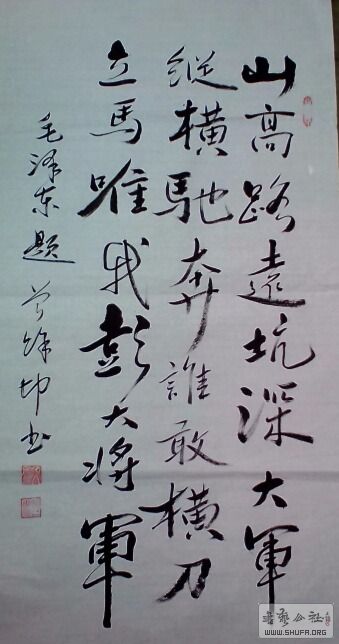 山高路遠坑深大軍
縱橫馳奔誰敢橫刀
立馬唯我彭大將軍
毛澤东题 徐坤书
WWW.SHUFA.ORG